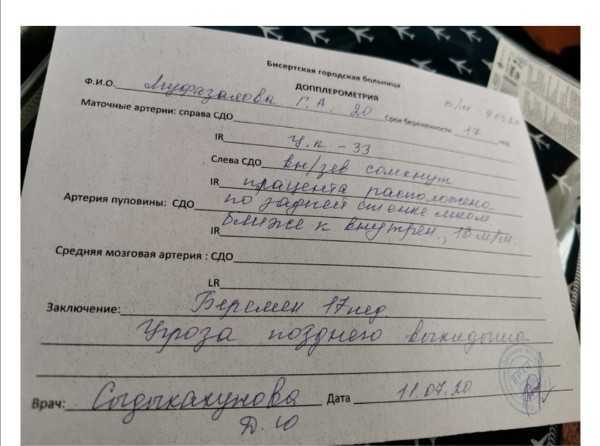 Бисертская городская больница
ДОППЛЕРОМЕТРИЯ
Ф.И.О. Муфазалова Г. А. 20
Маточные артерии: справа СДО Срок беременности 17 нед
IR ц.к - 33
Слева СДО вн/зев сомкнут
IR плацента расположена
Артерия пуповины: СДО по задней стенке
IR ближе к внутрен,
Средняя мозговая артерия : СДО
LR
Заключение: Беремен 17 нед
Угроза позднего выкидыша
Врач: Сыдыкакунова Дата 11.07.20
Д. Ю